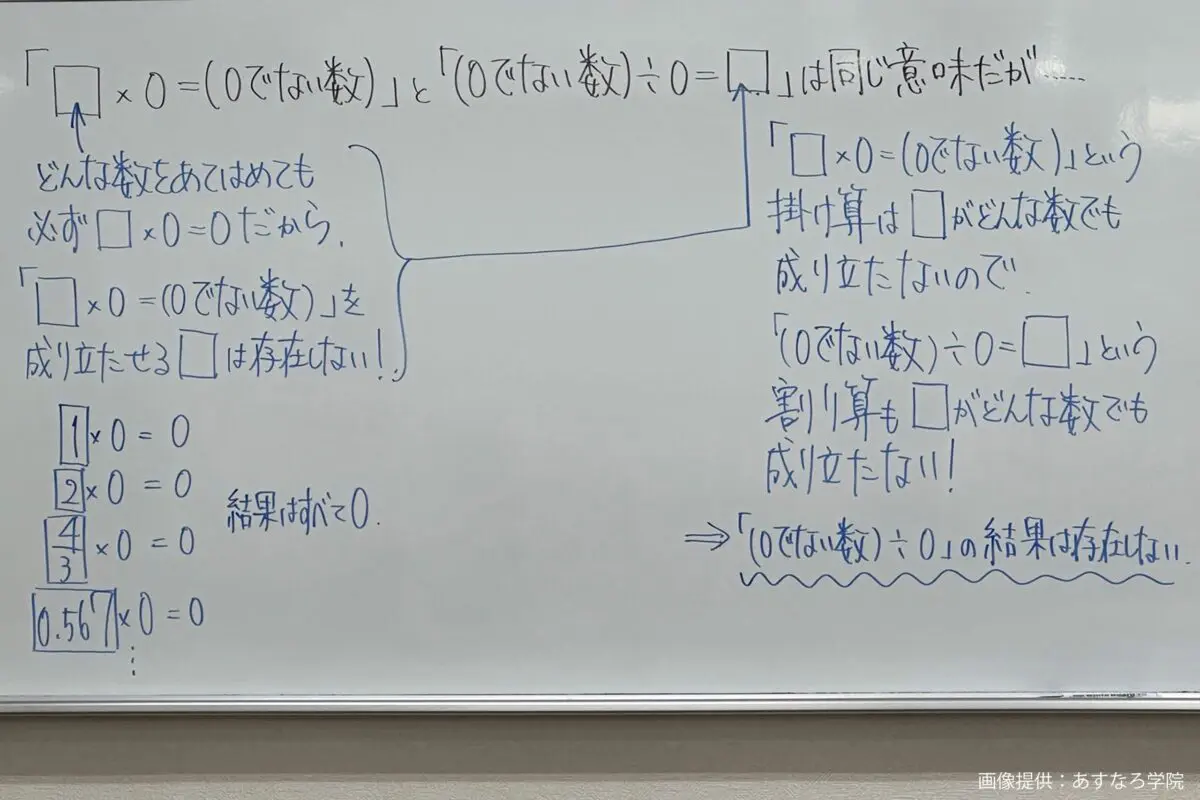 「□×0=(0でない数)」と「(0でない数)÷0=□」は同じ意味だが……
どんな数をあてはめても
必ず□×0=0だから、
「□×0=(0でない数)」を
成り立たせる□は存在しない!
1×0=0
2×0=0
4/3×0=0
0.567×0=0
⋮
結果はすべて0.
「□×0=(0でない数)」という
掛け算は□がどんな数でも
成り立たないので、
「(0でない数)÷0=□」という
割り算も□がどんな数でも
成り立たない!
⇒「(0でない数)÷0」の結果は存在しない.
画像提供:あすなろ学院